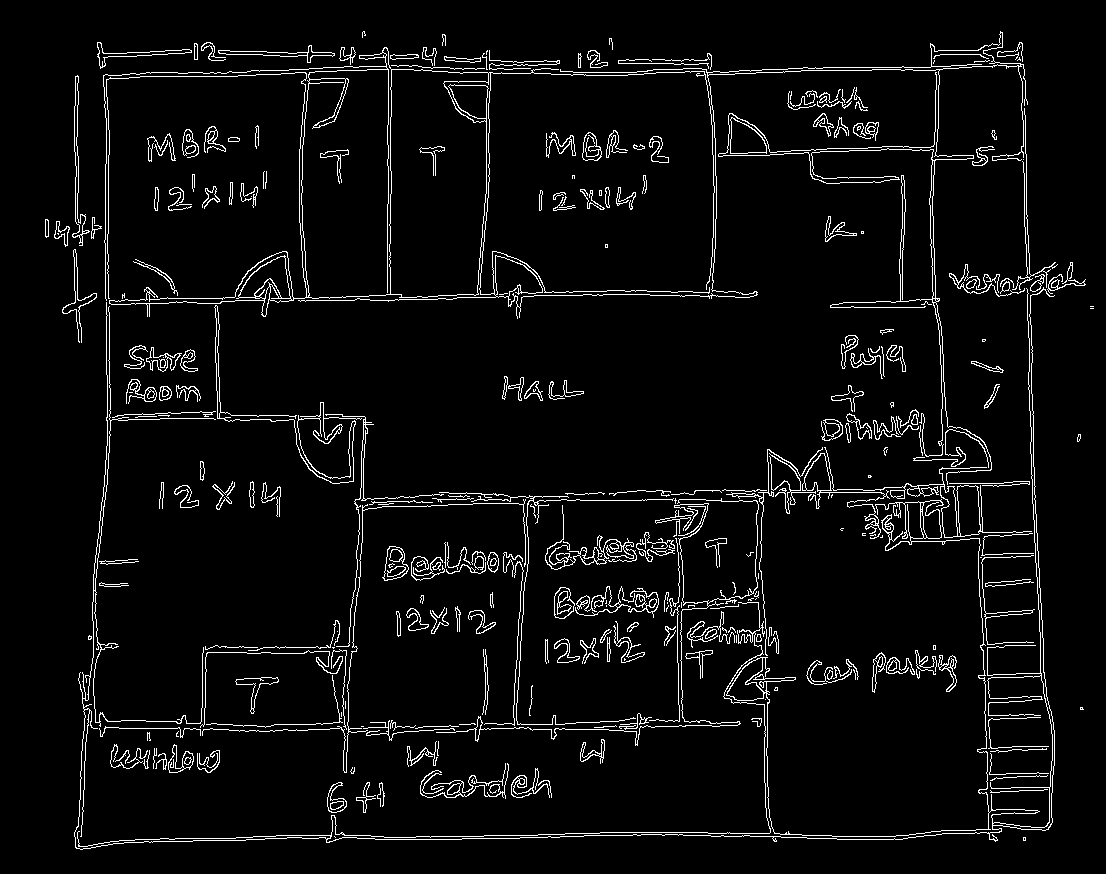 12
4'
4'
12'
MBR-1
12'x14'
T
T
MBR-2
12'x14'
Wash
Area
5'
14ft
K.
Varandah
Store
Room
HALL
Puja
+
Dinning
12'x14
Bedroom
12'x12'
Guest
Bedroom
12x12'
T
Common
T
T
Car parking
Window
W
W
6ft
Garden